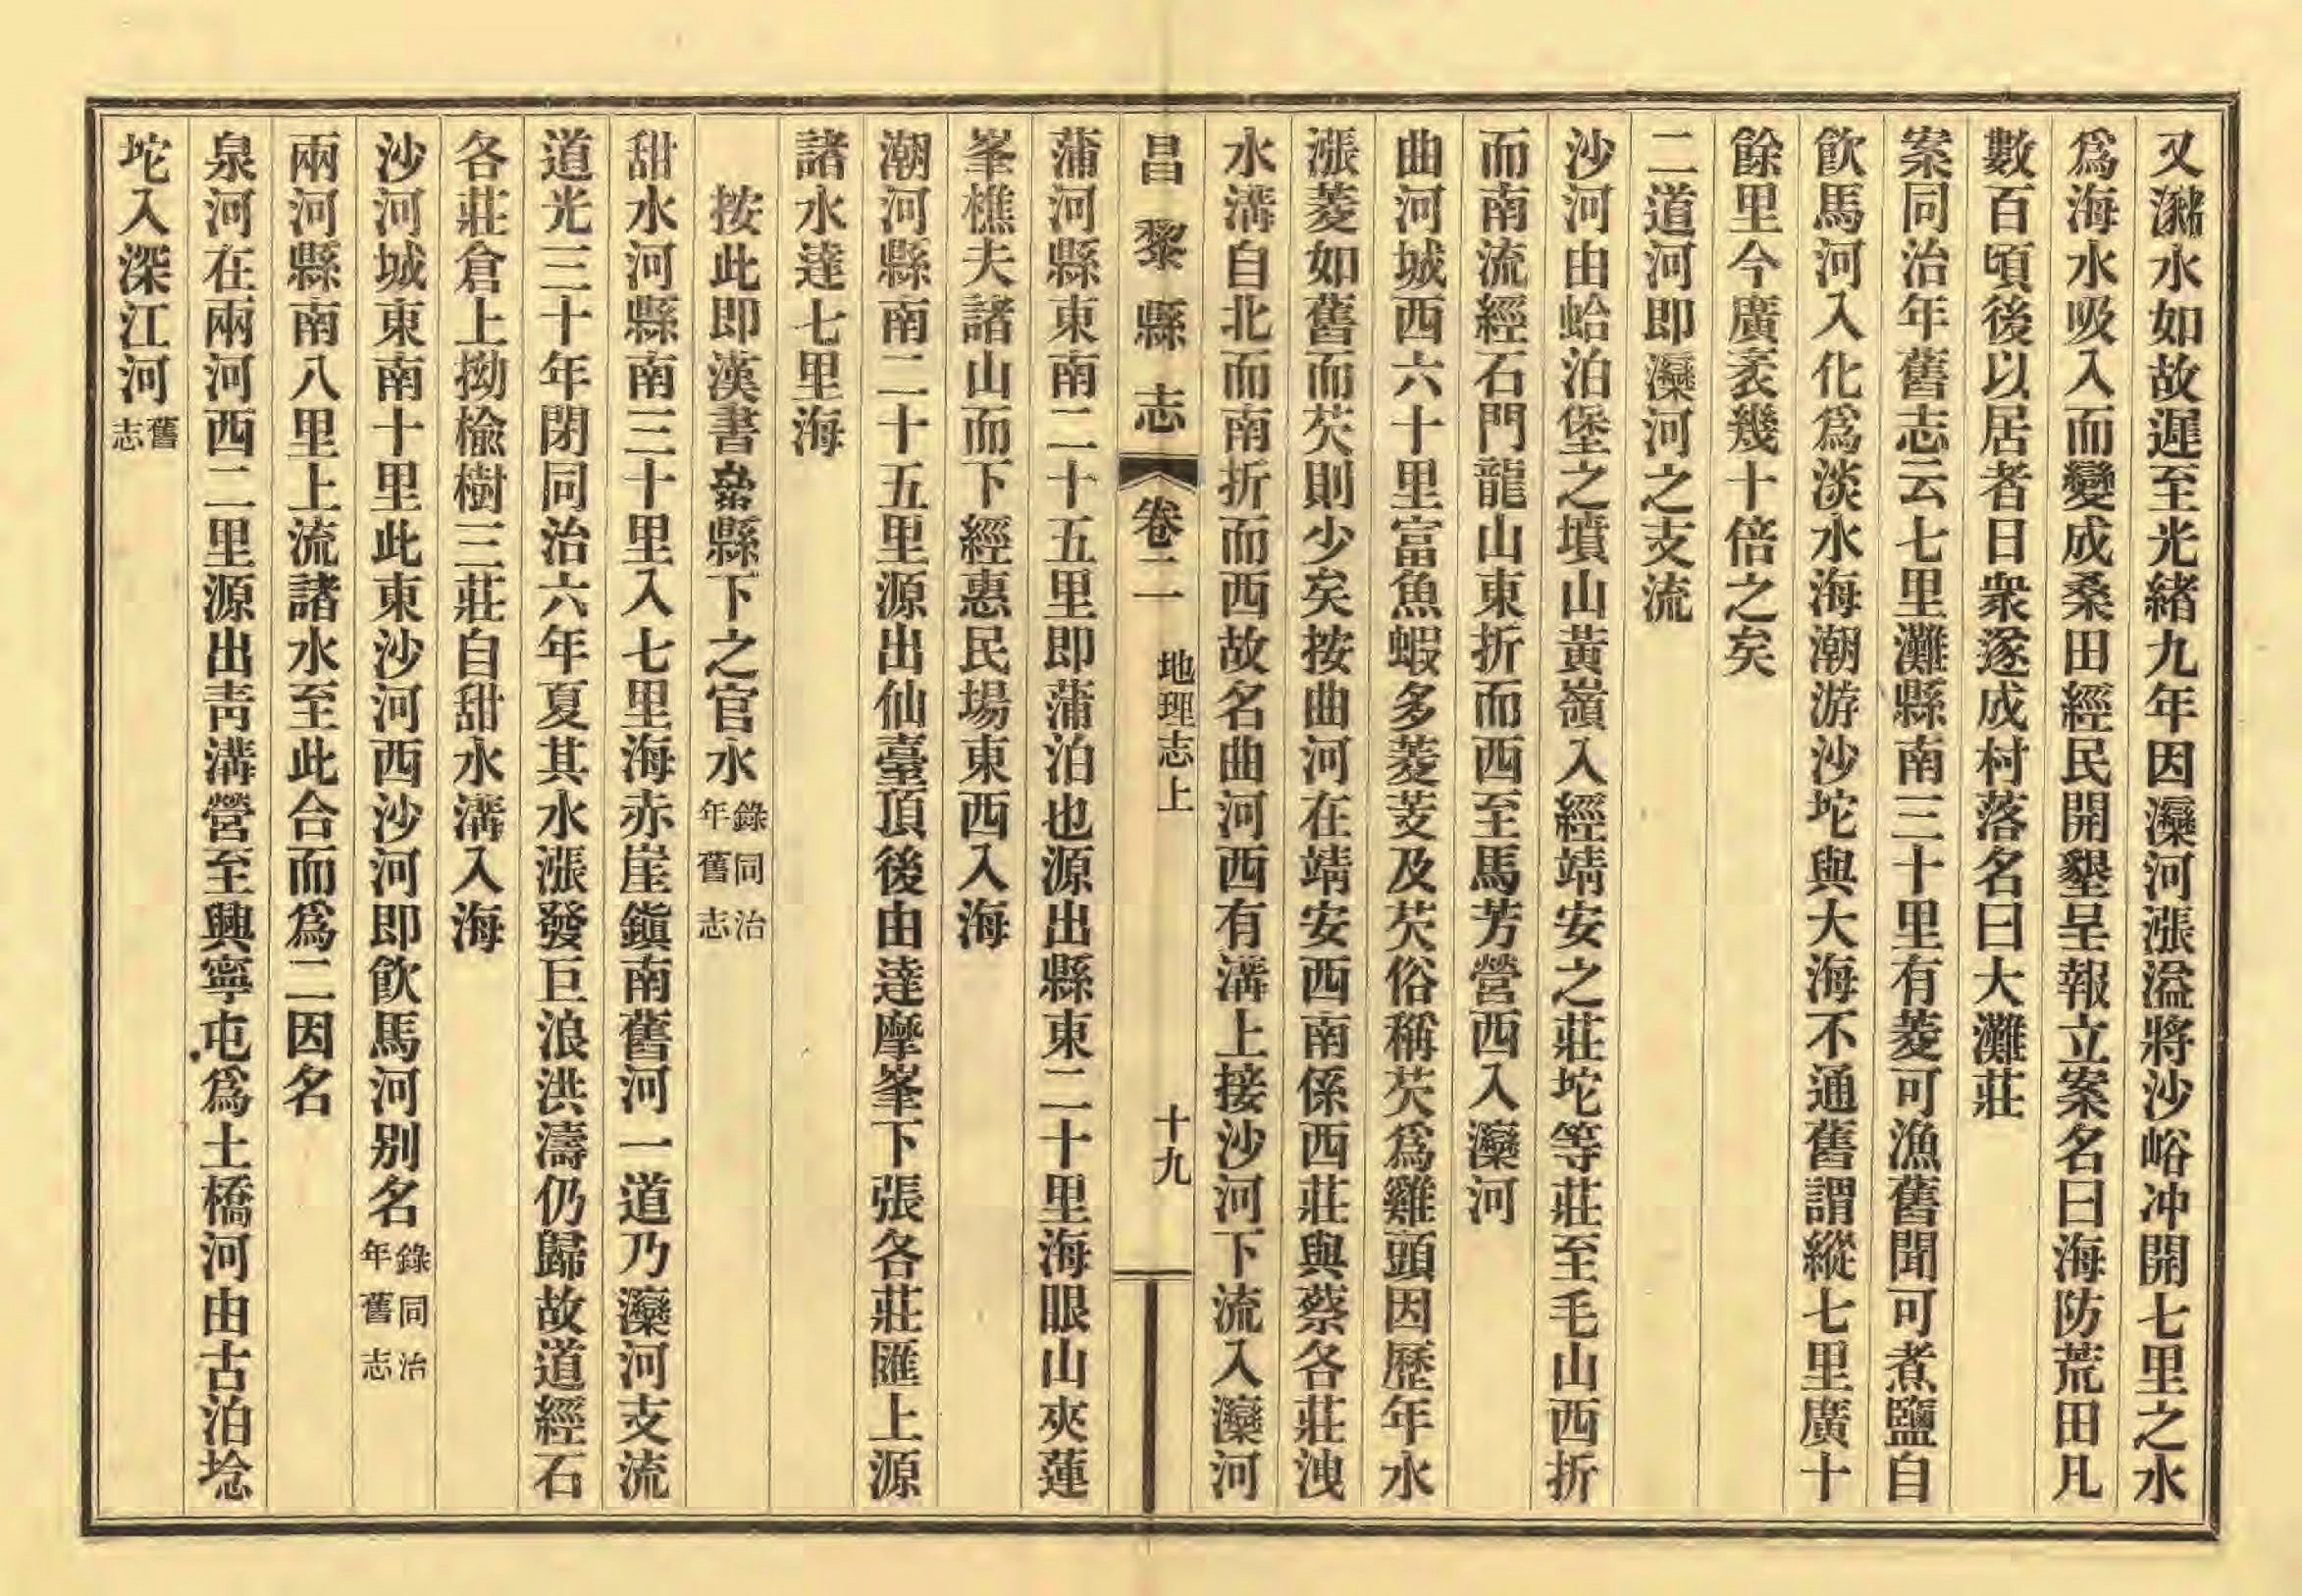 又瀦水如故遲至光緒九年因灤河漲溢將沙峪冲開七里之水
爲海水吸入而變成桑田經民開墾呈報立案名曰海防荒田凡
數百頃後以居者日衆遂成村落名曰大灘莊
案同治年舊志云七里灘縣南三十里有菱可漁舊聞可煮鹽自
飮馬河入化爲淡水海潮游沙坨與大海不通舊謂縱七里廣十
餘里今廣袤幾十倍之矣
二道河即灤河之支流
沙河由蛤泊堡之墳山黃嶺入經靖安之莊坨等莊至毛山西折
而南流經石門龍山東折而西至馬芳營西入灤河
曲河城西六十里富魚蝦多菱芰及芡俗稱芡爲雞頭因歷年水
漲菱如舊而芡則少矣按曲河在靖安西南係西莊與蔡各莊洩
水溝自北而南折而西故名曲河西有溝上接沙河下流入灤河
昌黎縣志 卷二 地理志上 十九
蒲河縣東南二十五里即蒲泊也源出縣東二十里海眼山夾蓮
峯樵夫諸山而下經惠民場東西入海
潮河縣南二十五里源出仙臺頂後由達摩峯下張各莊匯上源
諸水達七里海
按此即漢書絫縣下之官水錄同治年舊志
甜水河縣南三十里入七里海赤崖鎭南舊河一道乃灤河支流
道光三十年閉同治六年夏其水漲發巨浪洪濤仍歸故道經石
各莊倉上拗榆樹三莊自甜水溝入海
沙河城東南十里此東沙河西沙河即飮馬河别名錄同治年舊志
兩河縣南八里上流諸水至此合而爲二因名
泉河在兩河西二里源出靑溝營至興寧屯爲土橋河由古泊埝
坨入深江河舊志